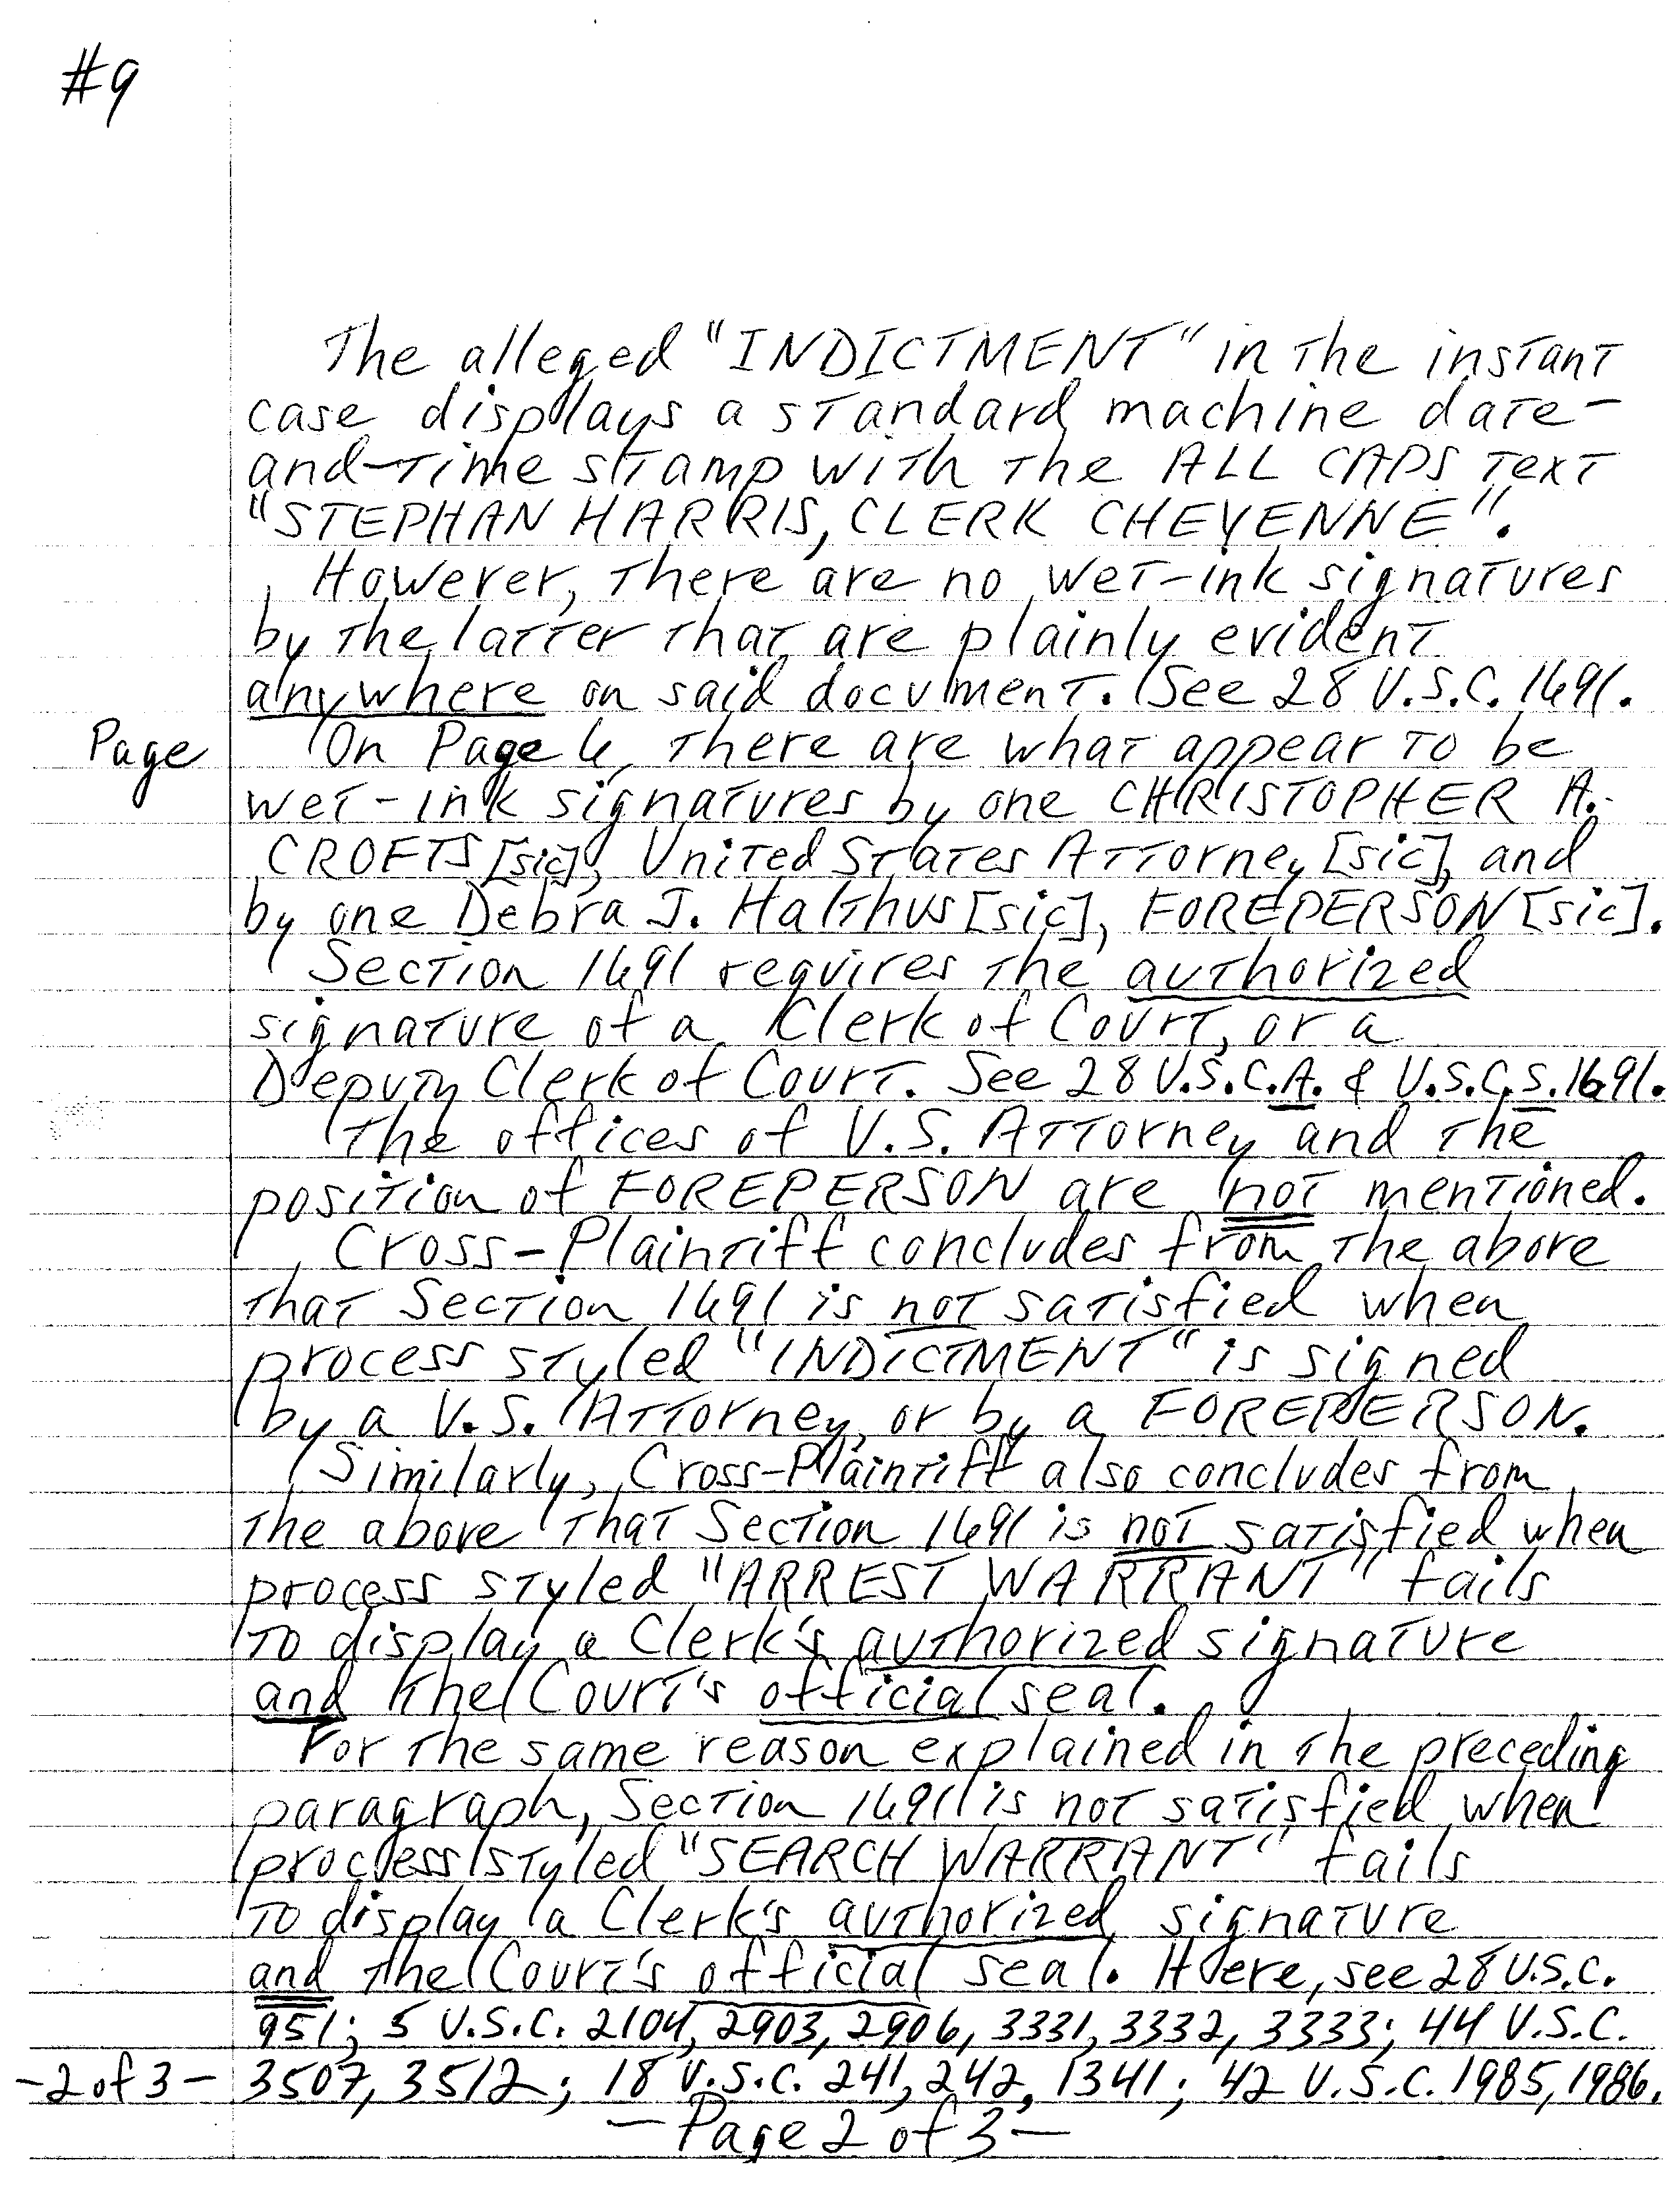 #9
The alleged "INDICTMENT" in the instant
case displays a standard machine date-
and-time stamp with the ALL CAPS text
"STEPHAN HARRIS, CLERK CHEYENNE".
However, there are no wet-ink signatures
by the latter that are plainly evident
anywhere on said document. See 28 U.S.C. 1691.
Page
On Page 6, there are what appear to be
wet-ink signatures by one CHRISTOPHER A.
CROFTS [sic], United States Attorney [sic], and
by one Debra J. Halthus [sic], FOREPERSON [sic].
Section 1691 requires the authorized
signature of a Clerk of Court, or a
Deputy Clerk of Court. See 28 U.S.C.A. & U.S.C.S. 1691.
The offices of U.S. Attorney and the
position of FOREPERSON are not mentioned.
Cross-Plaintiff concludes from the above
that Section 1691 is not satisfied when
process styled "INDICTMENT" is signed
by a U.S. Attorney, or by a FOREPERSON.
Similarly, Cross-Plaintiff also concludes from
the above that Section 1691 is not satisfied when
process styled "ARREST WARRANT" fails
to display a Clerk's authorized signature
and the Court's official seal.
For the same reason explained in the preceding
paragraph, Section 1691 is not satisfied when
process styled "SEARCH WARRANT" fails
to display a Clerk's authorized signature
and the Court's official seal. Here, see 28 U.S.C.
951; 5 U.S.C. 2104, 2903, 2906, 3331, 3332, 3333; 44 U.S.C.
-2 of 3- 3507, 3512; 18 U.S.C. 241, 242, 1341; 42 U.S.C. 1985, 1986.
- Page 2 of 3 -